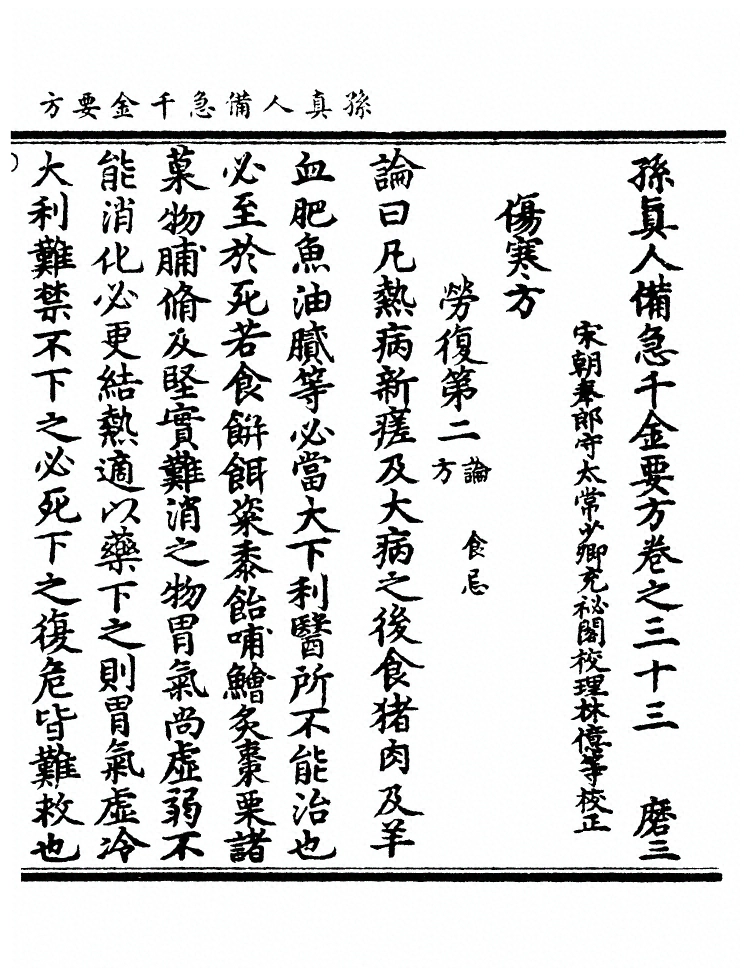 孫真人備急千金要方
孫真人備急千金要方卷之三十三　磨三
宋朝奉郎守太常少卿充祕閣校理林億等校正
傷寒方
勞復第二 論 食忌 方
論曰凡熱病新瘥及大病之後食猪肉及羊
血肥魚油膩等必當大下利醫所不能治也
必至於死若食餅餌粢黍飴哺鱠炙棗栗諸
菓物脯脩及堅實難消之物胃氣尚虛弱不
能消化必更結熱適以藥下之則胃氣虛冷
大利難禁不下之必死下之復危皆難救也